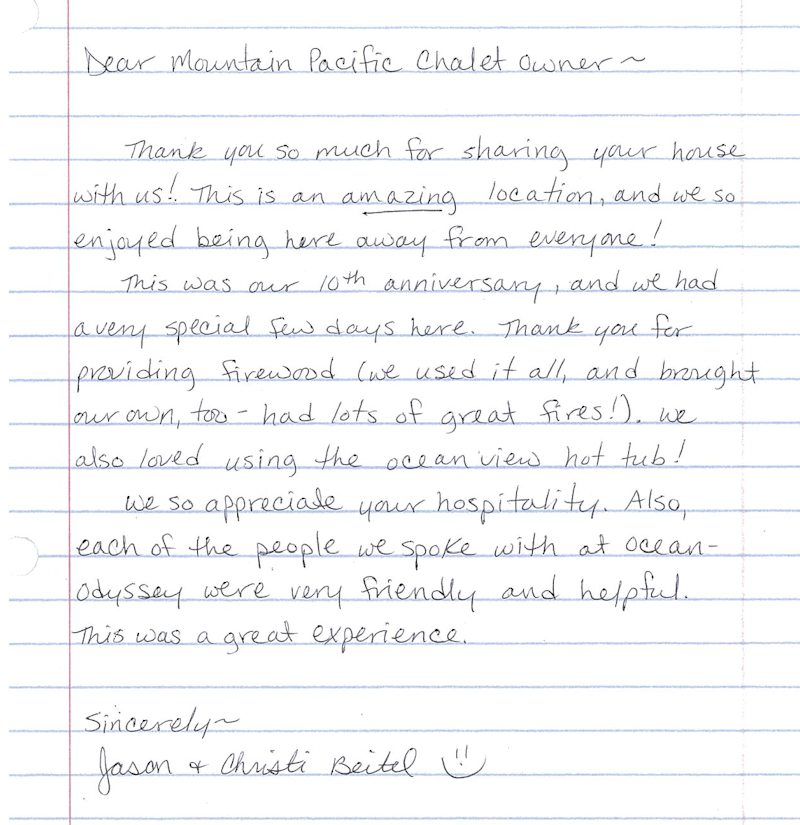 Dear Mountain Pacific Chalet Owner ~
Thank you so much for sharing your house
with us!! This is an amazing location, and we so
enjoyed being here away from everyone!
This was our 10th anniversary, and we had
a very special few days here. Thank you for
providing firewood (we used it all, and brought
our own, too - had lots of great fires!). We
also loved using the ocean view hot tub!
We so appreciate your hospitality. Also,
each of the people we spoke with at ocean-
odyssey were very friendly and helpful.
This was a great experience.
Sincerely~
Jason + Christi Beitel